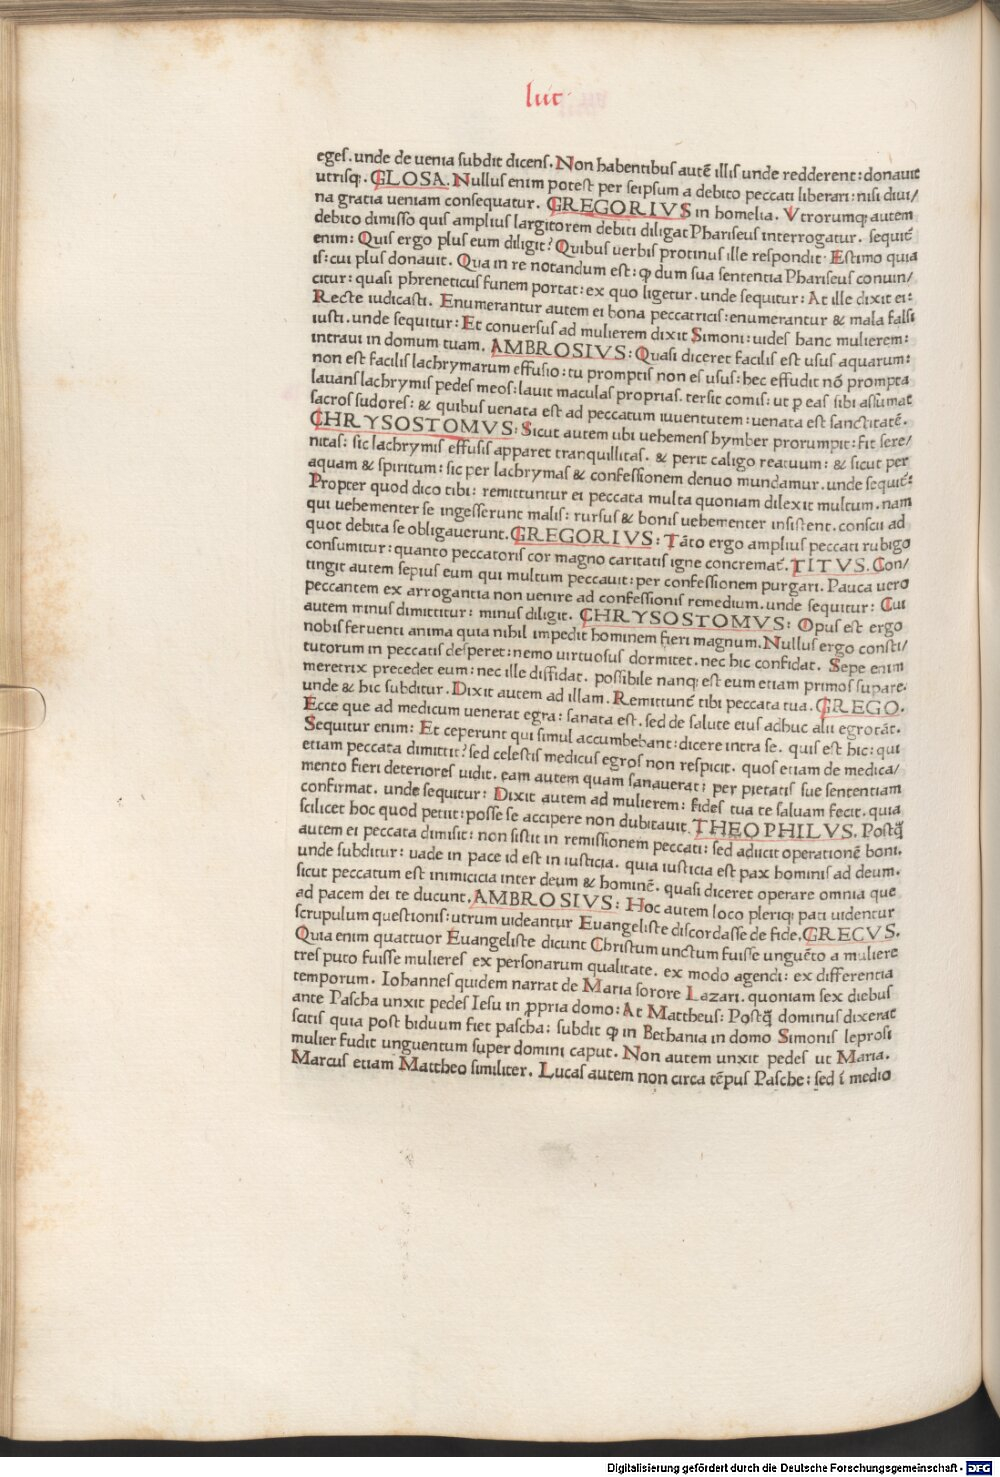 luc
eges. unde de uenia subdit dicens. Non habentibus autē illis unde redderent: donauit
utrisqꝫ. GLOSA. Nullus enim potest per seipsum a debito peccati liberari: nisi diui/
na gratia ueniam consequatur. GREGORIVS in homelia. Vtrorumqꝫ autem
debito dimisso quis amplius largitorem debiti diligat Phariseus interrogatur. sequit᷑
enim: Quis ergo plus eum diligit? Quibus uerbis protinus ille respondit. Estimo quia
is: cui plus donauit. Qua in re notandum est: ꝙ dum sua sententia Phariseus conuin/
citur: quasi phreneticus funem portat: ex quo ligetur. unde sequitur: At ille dixit ei:
Recte iudicasti. Enumerantur autem ei bona peccatricis: enumerantur & mala falsi
iusti. unde sequitur: Et conuersus ad mulierem dixit Simoni: uides hanc mulierem:
intraui in domum tuam. AMBROSIVS: Quasi diceret facilis est usus aquarum:
non est facilis lachrymarum effusio: tu promptis non es usus: hec effudit nō prompta
lauans lachrymis pedes meos: lauit maculas proprias. tersit comis: ut ꝑ eas sibi assumat
sacros sudores: & quibus uenata est ad peccatum iuuentutem: uenata est sanctitatē.
CHRYSOSTOMVS: Sicut autem ubi uehemens hymber prorumpit: fit sere/
nitas: sic lachrymis effusis apparet tranquillitas. & perit caligo reatuum: & sicut per
aquam & spiritum: sic per lachrymas & confessionem denuo mundamur. unde sequit᷑:
Propter quod dico tibi: remittuntur ei peccata multa quoniam dilexit multum. nam
qui uehementer se ingesserunt malis: rursus & bonis uehementer insistent. conscii ad
quot debita se obligauerunt. GREGORIVS: Tāto ergo amplius peccati rubigo
consumitur: quanto peccatoris cor magno caritatis igne concremat᷑. TITVS. Con/
tingit autem sepius eum qui multum peccauit: per confessionem purgari. Pauca uero
peccantem ex arrogantia non uenire ad confessionis remedium. unde sequitur: Cui
autem minus dimittitur: minus diligit. CHRYSOSTOMVS: Opus est ergo
nobis feruenti anima quia nihil impedit hominem fieri magnum. Nullus ergo consti/
tutorum in peccatis desperet: nemo uirtuosus dormitet. nec hic confidat. Sepe enim
meretrix precedet eum: nec ille diffidat. possibile nanqꝫ est eum etiam primos supare.
unde & hic subditur. Dixit autem ad illam. Remittunt᷑ tibi peccata tua. GREGO.
Ecce que ad medicum uenerat egra: sanata est. sed de salute eius adhuc alii egrotāt.
Sequitur enim: Et ceperunt qui simul accumbebant: dicere intra se. quis est hic: qui
etiam peccata dimittit? sed celestis medicus egros non respicit. quos etiam de medica/
mento fieri deteriores uidit. eam autem quam sanauerat: per pietatis sue sententiam
confirmat. unde sequitur: Dixit autem ad mulierem: fides tua te saluam fecit. quia
scilicet hoc quod petiit: posse se accipere non dubitauit. THEOPHILVS. Postꝙ̄
autem ei peccata dimisit: non sistit in remissionem peccati: sed adiicit operationē boni.
unde subditur: uade in pace id est in iusticia. quia iusticia est pax hominis ad deum.
sicut peccatum est inimicicia inter deum & hominē. quasi diceret operare omnia que
ad pacem dei te ducunt. AMBROSIVS: Hoc autem loco pleriqꝫ pati uidentur
scrupulum questionis: utrum uideantur Euangeliste discordasse de fide. GRECVS.
Quia enim quattuor Euangeliste dicunt Christum unctum fuisse unguēto a muliere
tres puto fuisse mulieres ex personarum qualitate. ex modo agendi: ex differentia
temporum. Iohannes quidem narrat de Maria sorore Lazari. quoniam sex diebus
ante Pascha unxit pedes Iesu in ꝓpria domo: At Mattheus: Postꝙ̄ dominus dixerat
scitis quia post biduum fiet pascha: subdit ꝙ in Bethania in domo Simonis leprosi
mulier fudit unguentum super domini caput. Non autem unxit pedes ut Maria.
Marcus etiam Mattheo similiter. Lucas autem non circa tēpus Pasche: sed ī medio
Digitalisierung gefördert durch die Deutsche Forschungsgemeinschaft - DFG